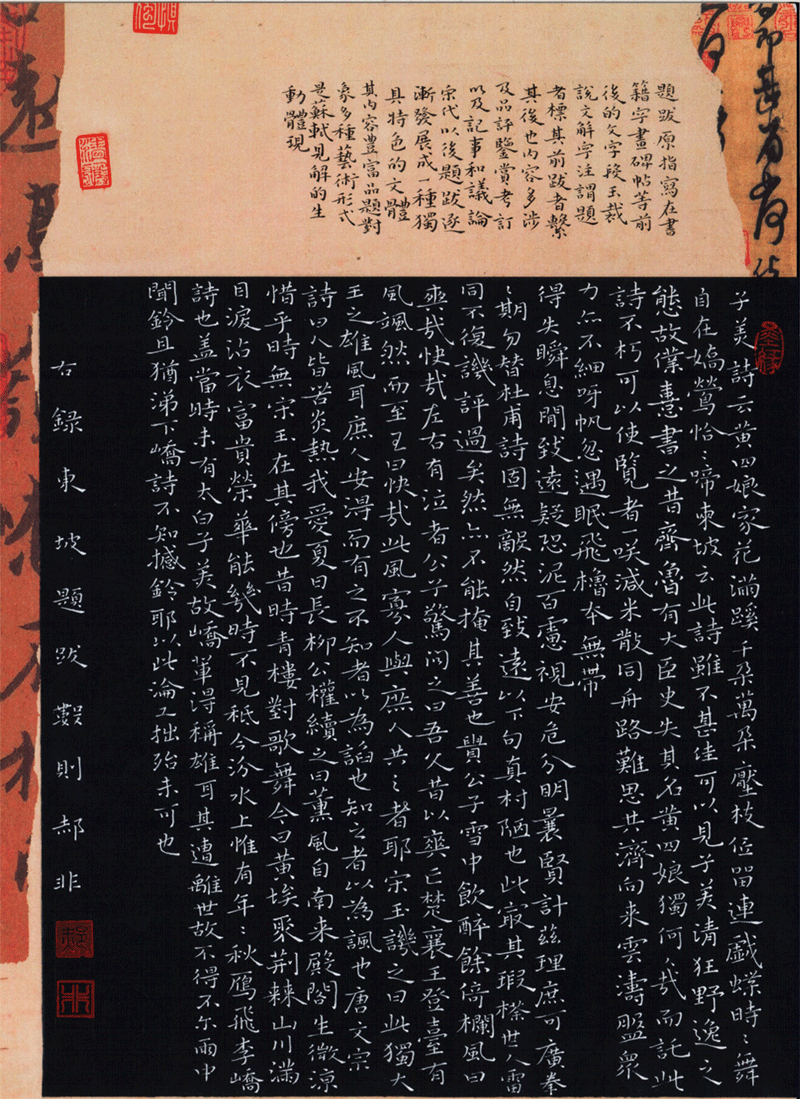 題跋原指寫在書
籍字畫碑帖等前
後的文字段玉裁
說文解字注謂題
者標其前跋者繫
其後也內容多涉
及品評鑒賞考訂
以及記事和議論
宋代以後題跋逐
漸發展成一種獨
具特色的文體
其內容豐富品題對
象多種藝術形式
是蘇軾見解的生
動體現
子美詩云黃四娘家花滿蹊千朵萬朵壓枝低留連戲蝶時々舞
自在嬌鶯恰々啼東坡云此詩雖不甚佳可以見子美清狂野逸之
態故僕憙書之昔齊魯有大臣史失其名黃四娘獨何人哉而託此
詩不朽可以使覽者一咲減米散同舟路難思共濟向來雲濤盤眾
力亦不細呀帆忽遇眠飛櫓本無蒂
得失瞬息間致遠疑恐泥百慮視安危分明曩賢計茲理庶可廣拳
々期勿替杜甫詩固無敵然自致遠以下句真村陋也此寂其瑕橤世人雷
同不復譏評過矣然亦不能掩其善也貴公子雪中飲醉餘倚欄風曰
爽哉快哉左右有泣者公子驚問之曰吾父昔以爽亡楚襄王登臺有
風颯然而至王曰快哉此風寡人與庶人共之者耶宋玉譏之曰此獨大
王之雄風耳庶人安得而有之不知者以為諂也知之者以為諷也唐文宗
詩曰人皆苦炎熱我愛夏日長柳公權續之曰薰風自南來殿閣生微涼
惜乎時無宋玉在其傍也昔時青樓對歌舞今日黃埃聚荊棘山川滿
目淚沾衣富貴榮華能幾時不見秖今汾水上惟有年々秋鴈飛李嶠
詩也蓋當時未有太白子美故嶠輩得稱雄耳其遭離世故不得不尔雨中
聞鈴且猶涕下嶠詩不知撼鈴耶以此論工拙殆未可也
右錄東坡題跋數則郝非